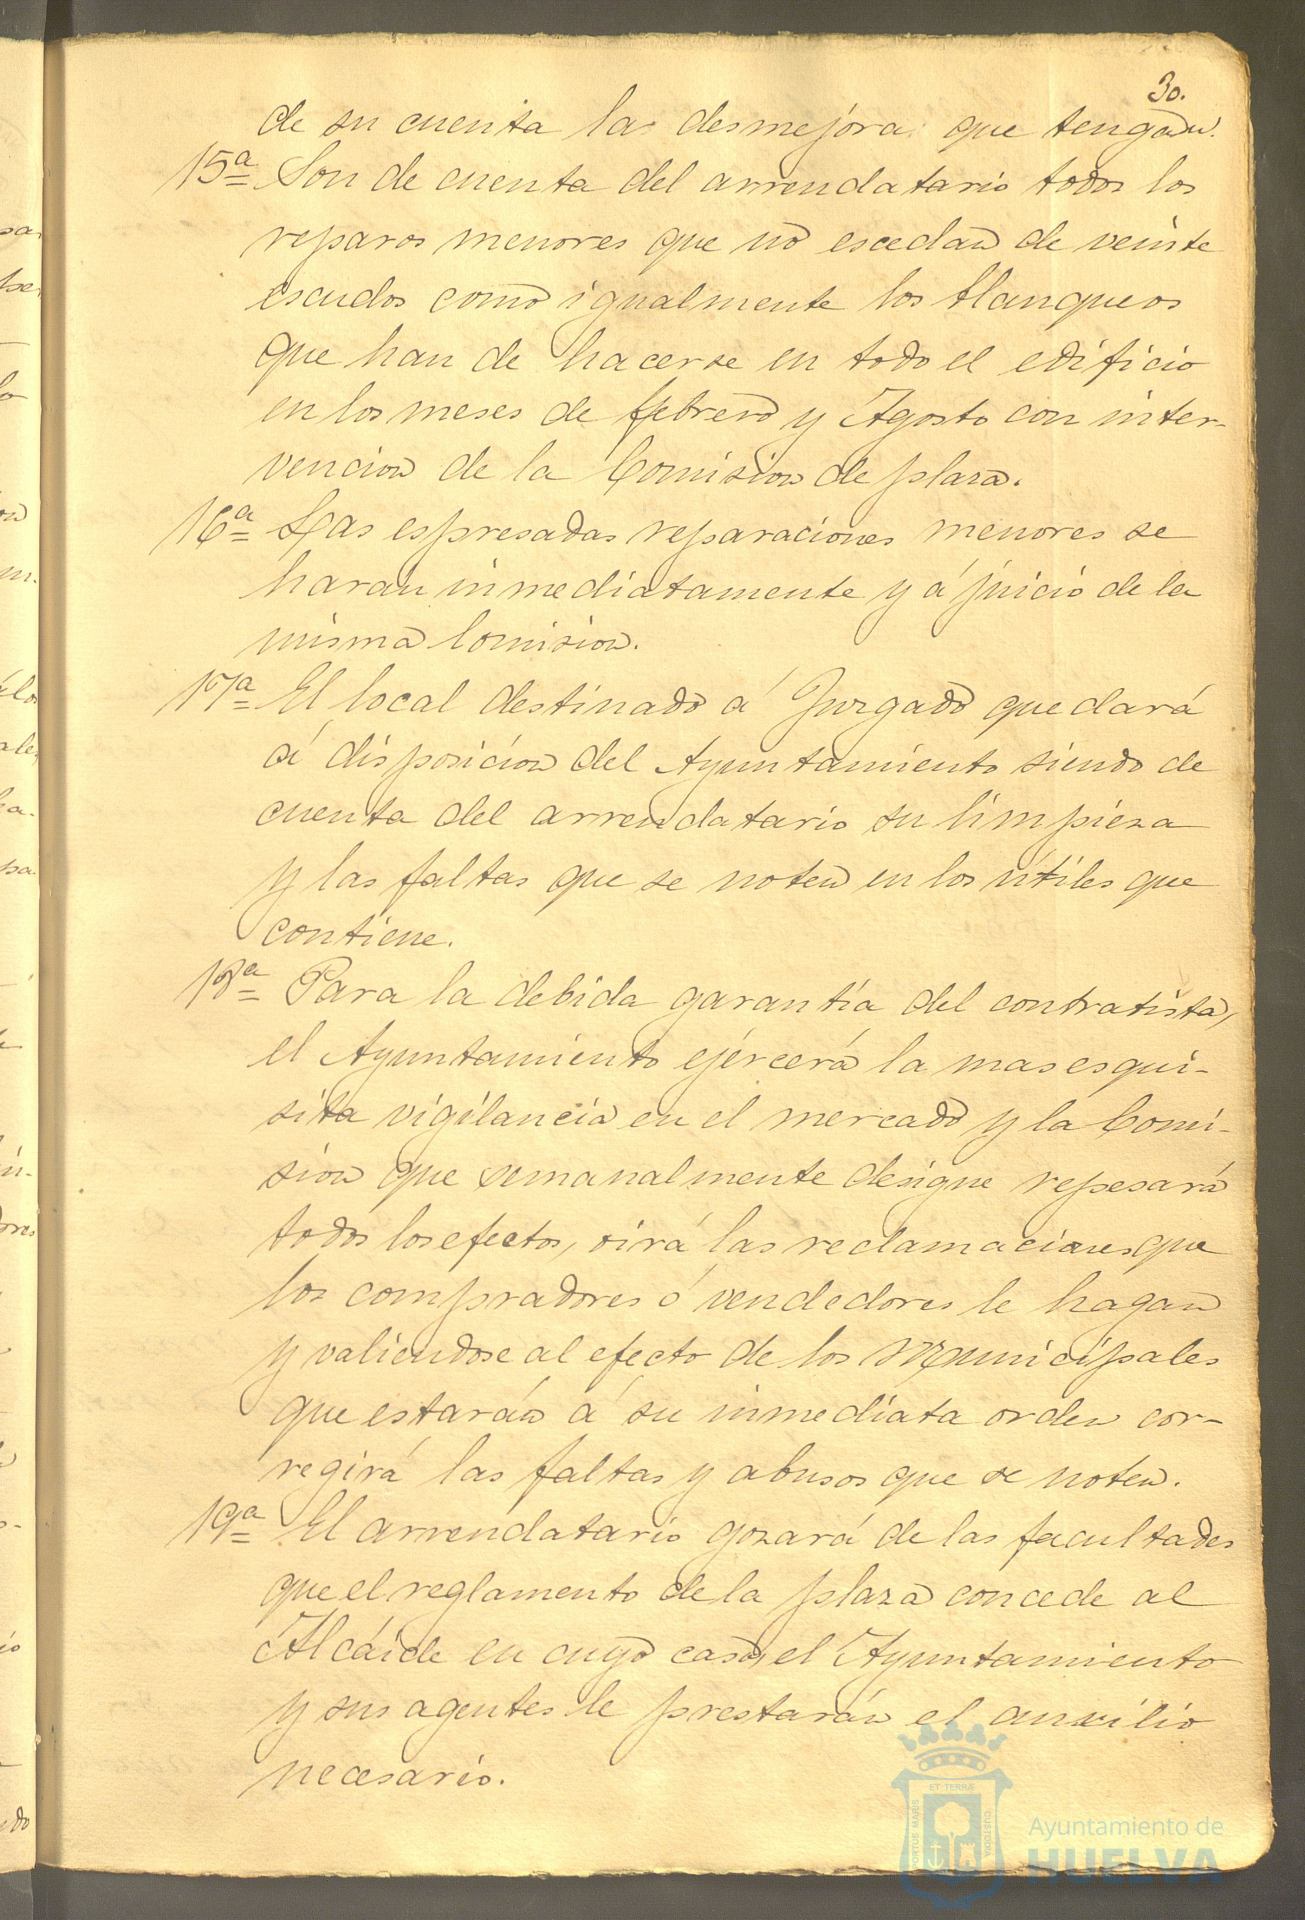 30.
de su cuenta las desmejoras que tengan.
15ª Son de cuenta del arrendatario todos los
reparos menores que no escedan de veinte
escudos como igualmente los blanqueos
que han de hacerse en todo el edificio
en los meses de febrero y Agosto con inter-
vencion de la Comision de plaza.
16ª Las espresadas reparaciones menores se
harán inmediatamente y á juicio de la
misma Comision.
17ª El local destinado á Juzgado quedará
á disposicion del Ayuntamiento siendo de
cuenta del arrendatario su limpieza
y las faltas que se noten en los útiles que
contiene.
18ª Para la debida garantía del contratista,
el Ayuntamiento ejercerá la mas esqui-
sita vigilancia en el mercado y la Comi-
sion que semanalmente designe repesará
todos los efectos, oirá las reclamaciones que
los compradores ó vendedores le hagan
y valiendose al efecto de los Municipales
que estarán á su inmediata orden cor-
regirá las faltas y abusos que se noten.
19ª El arrendatario gozará de las facultades
que el reglamento de la plaza concede al
Alcáide en cuyo caso, el Ayuntamiento
y sus agentes le prestarán el auxilio
necesario.
ET TERRÆ
PORTUS MARIS
CUSTODIA
Ayuntamiento de
HUELVA